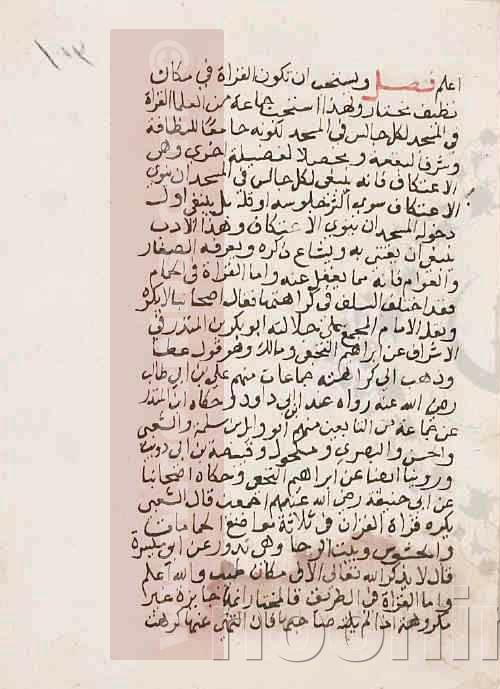 اعلم فصل ويستحب ان تكون القراة في مكان
نظيف مختار ولهذا استحب جماعة من العلما القراة
في المسجد لكل جالس في المسجد لكونه جامعا للنظافة
وشرف البقعة ومحصلا لفضيلة اخرى وهي
الاعتكاف فانه ينبغي لكل جالس في المسجد ان ينوي
الاعتكاف سوا اكثر جلوسه او قل بل ينبغي اول
دخوله المسجد ان ينوي الاعتكاف وهذا الادب
ينبغي ان يعتنى به ويشاع ذكره ويعرفه الصغار
والعوام فانه مما يغفل عنه واما القراة في الحمام
فقد اختلف السلف في كراهتها فقال اصحابنا لا يكره
ونقله الامام المجمع على جلالته ابو بكر بن المنذر في
الاشراف عن ابراهيم النخعي ومالك وهو قول عطا
وذهب الى كراهته جماعات منهم علي بن ابي طالب
رضي الله عنه رواه عنه ابن ابي داود وحكاه ابن المنذر
عن جماعة من التابعين منهم ابو وايل بن سلمة والشعبي
والحسن والبصري ومكحول وقبيصة بن ابي ذويب
وروينا ايضا عن ابراهيم النخعي وحكاه اصحابنا
عن ابي حنيفة رضي الله عنهم اجمعين قال الشعبي
يكره قراة القران في ثلاثة مواضع الحمامات
والحشوش وبيت الرحا وهي تدور عن ابو ميسرة
قال لا يذكر الله تعالى الا في مكان طيب والله اعلم
واما القراة في الطريق فالمختار انها جايزة غير
مكروهة اذا لم يلته صاحبها فان التهى عنها كرهت
noormags